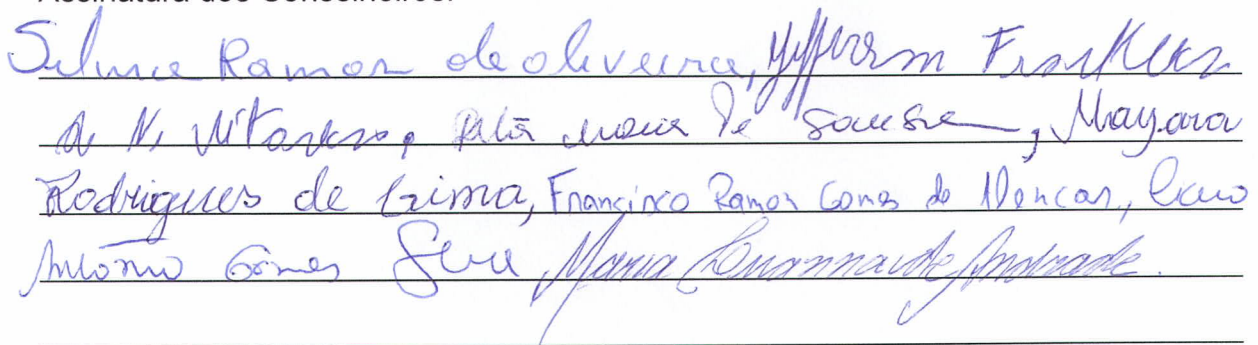 Assinatura dos Conselheiros:
Ramon de oliveira, Jefferson Franklin
de N. Maria de Sousa, Mayara
Rodrigues de Lima, Francisco Ramon Gomes de Alencar, Caio
Antônio Gomes Silva Maria Luanna de Andrade.